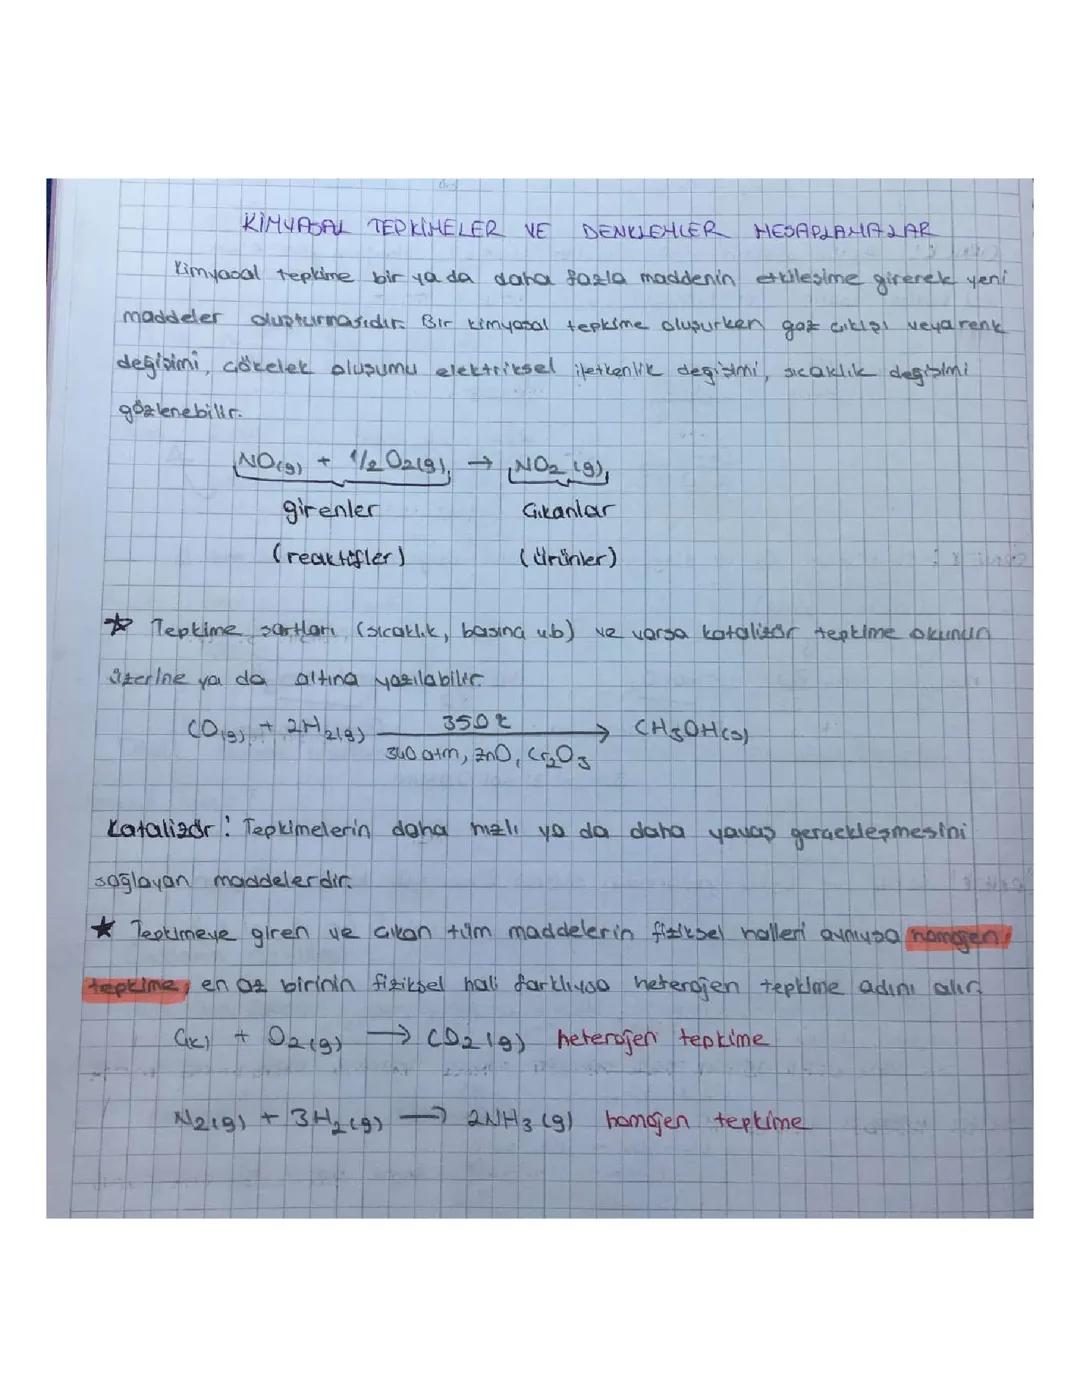 KİMYASAL TEPKİMELER VE DENKLEMLER HESAPLAMALAR
Kimyasal tepkime bir ya da daha fazla maddenin etkileşime girerek yeni
maddeler oluşturmasıdır. Bir kimyasal tepkime oluşurken gaz çıkışı veya renk
değişimi, çökelek oluşumu elektriksel iletkenlik değişimi, sıcaklık değişimi
gözlenebilir.
NO(g) + 1/2 O2(g) → NO2 (g)
girenler Çıkanlar
(reaktifler) (Ürünler)
★ Tepkime şartları (sıcaklık, basınç v.b) ve varsa katalizör tepkime okunun
üzerine ya da altına yazılabilir.
CO(g) + 2H2(g) 350 °C → CH3OH(s)
340 atm, ZnO, Cr2O3
Katalizör: Tepkimelerin daha hızlı ya da daha yavaş gerçekleşmesini
sağlayan maddelerdir.
★ Tepkimeye giren ve çıkan tüm maddelerin fiziksel halleri aynıysa homojen
tepkime, en az birinin fiziksel hali farklıysa heterojen tepkime adını alır.
C(k) + O2(g) → CO2(g) heterojen tepkime
N2(g) + 3H2(g) → 2NH3(g) homojen tepkime